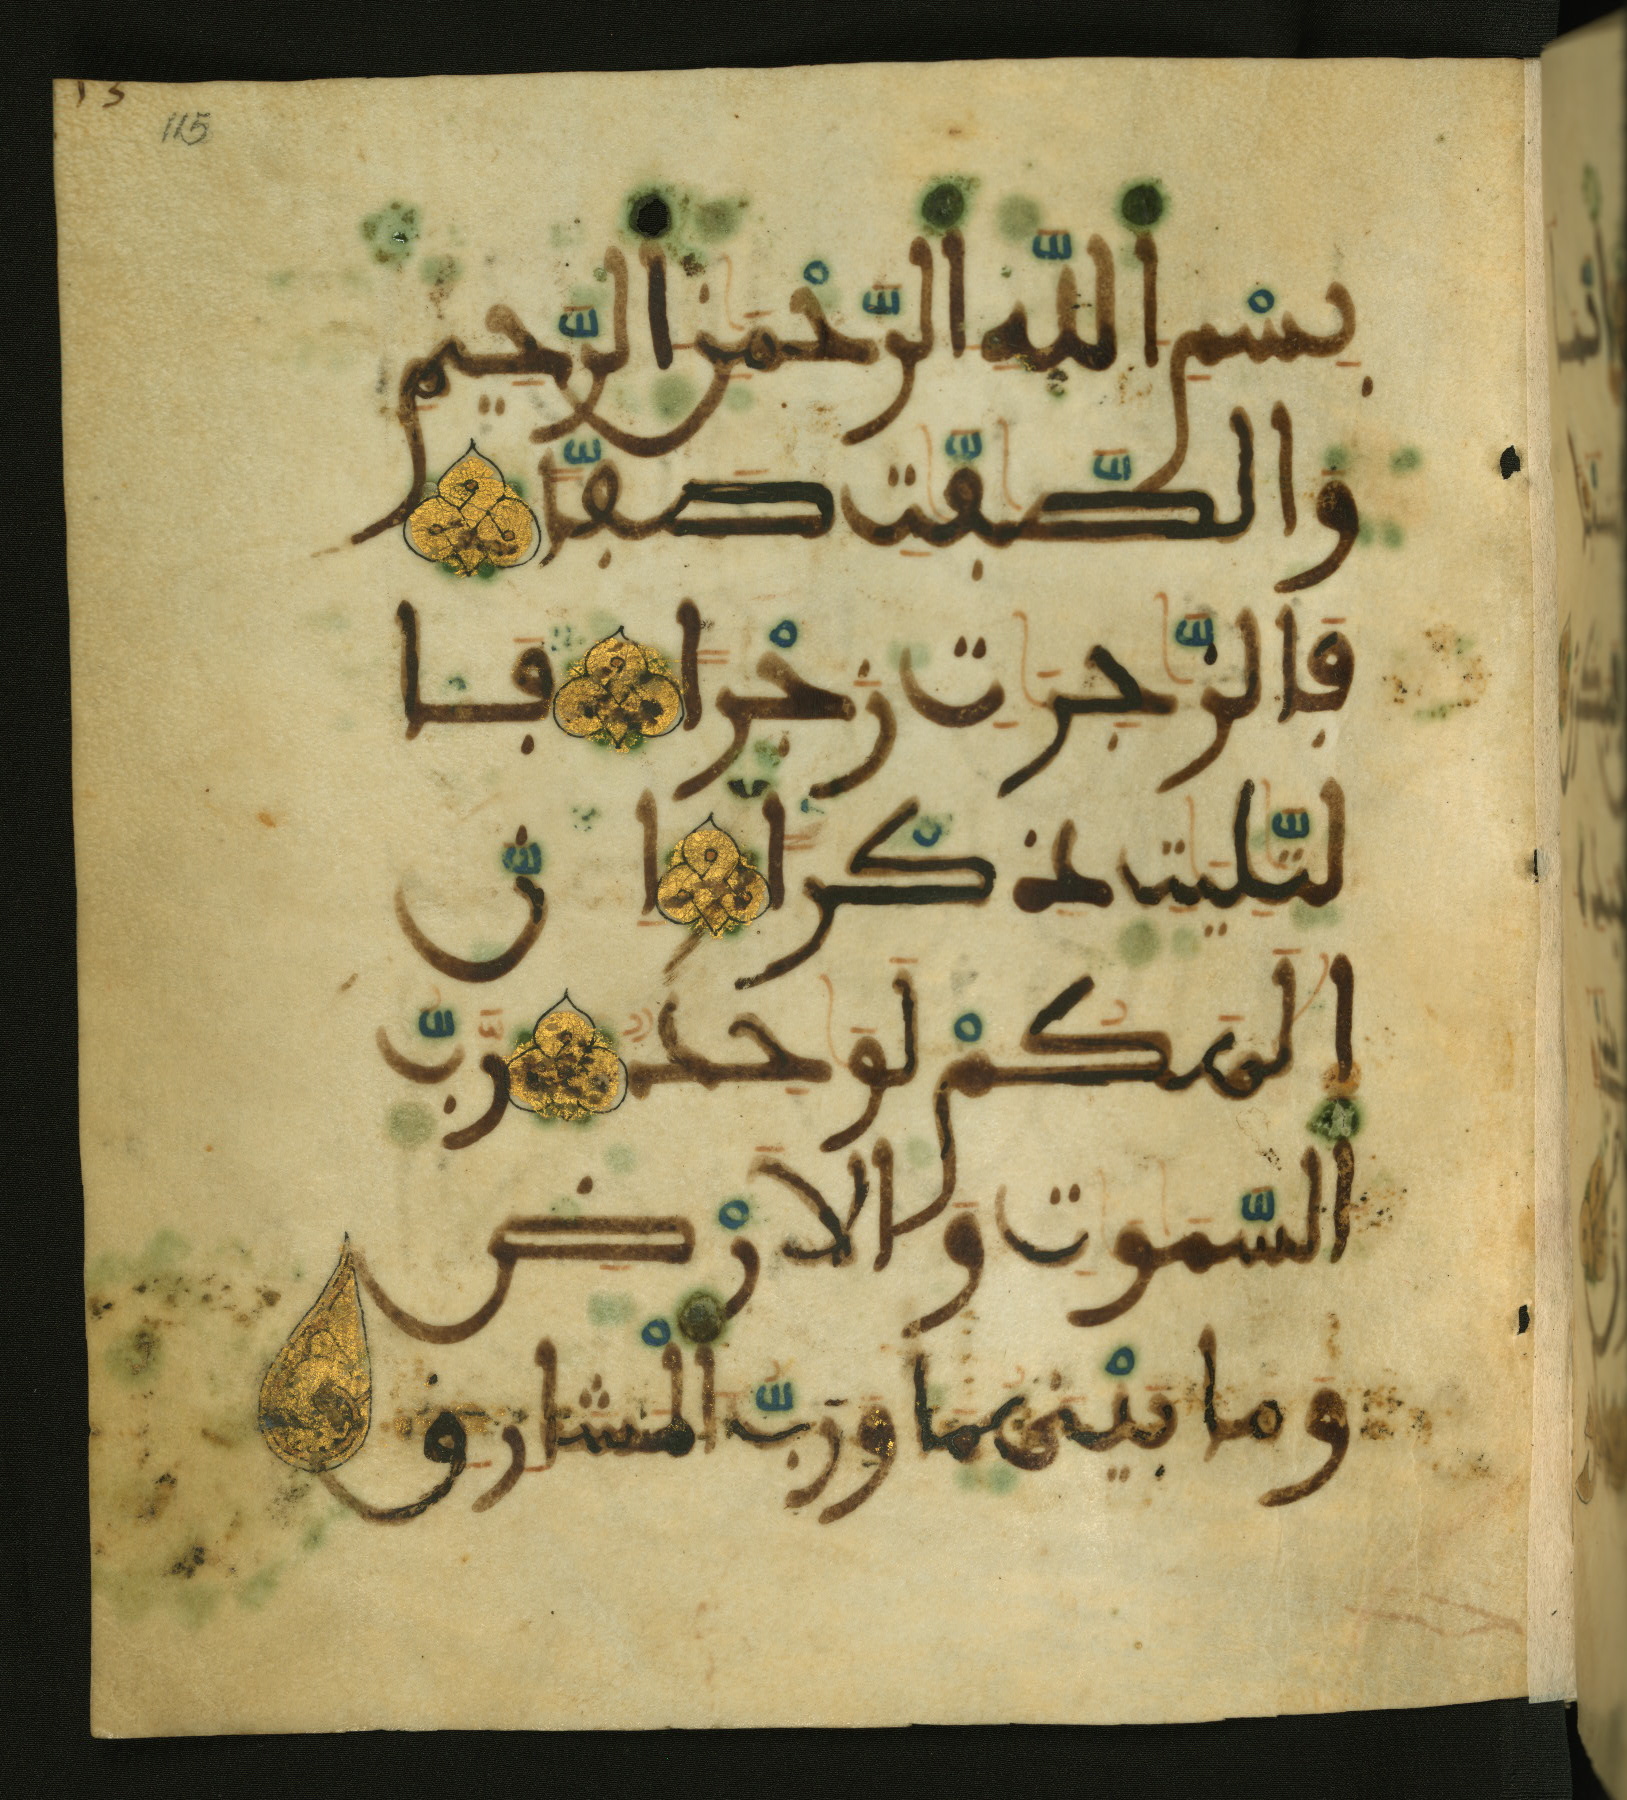 115
بِسْمِ اللَّهِ الرَّحْمَٰنِ الرَّحِيمِ
وَالصَّٰٓفَّٰتِ صَفّٗا
فَالزَّٰجِرَٰتِ زَجْرٗا فَا
لتَّٰلِيَٰتِ ذِكْرًا ا نَّ
إِلَٰهَكُمْ لَوَٰحِدٞ رَّبُّ
السَّمَٰوَٰتِ وَالَارْضِ
وَمَا بَيْنَهُمَا وَرَبُّ الْمَشَارِقِ